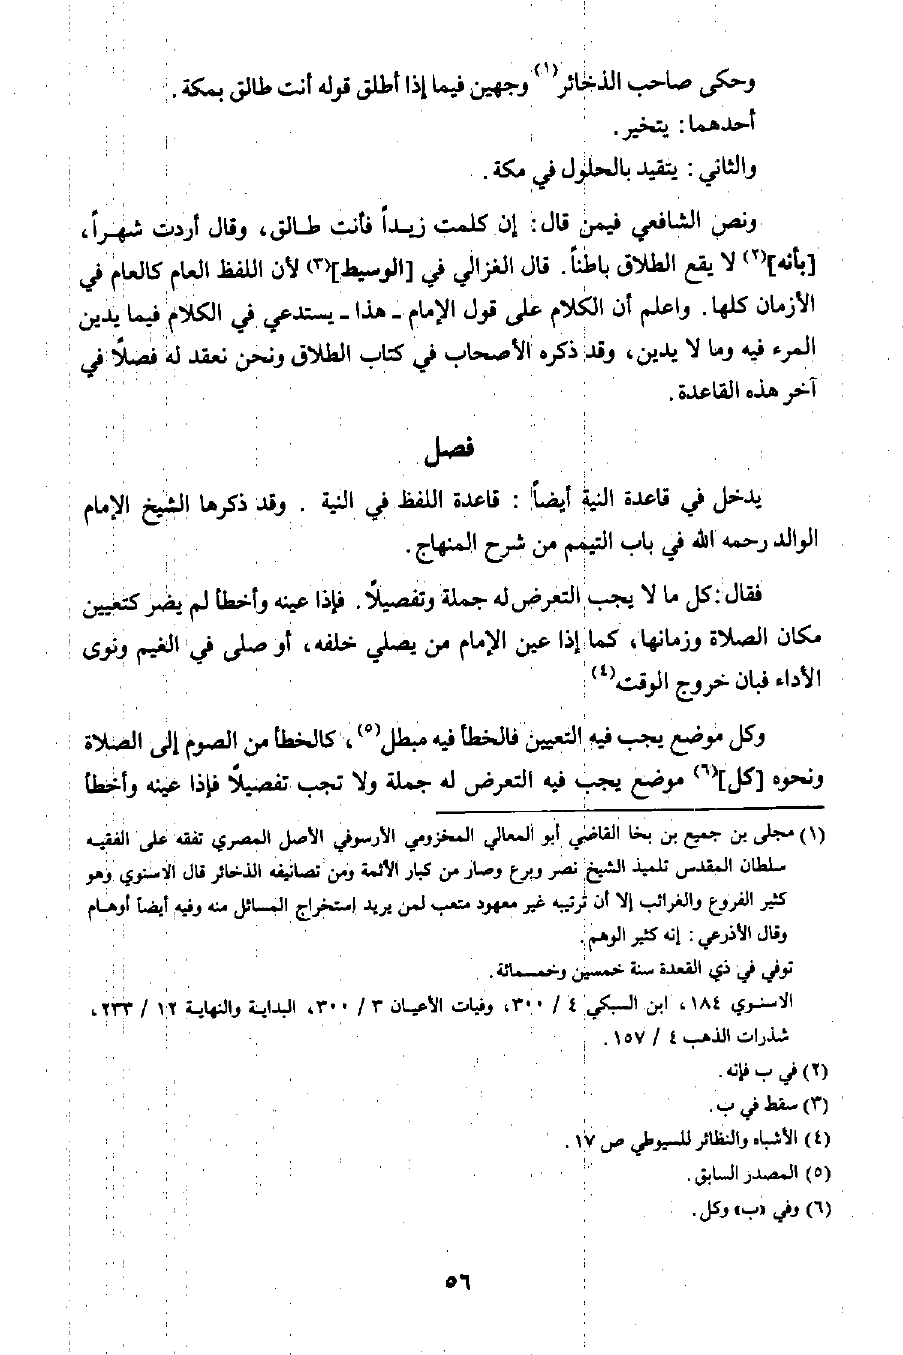 وحكى صاحب الذخائر(١) وجهين فيما إذا أطلق قوله أنت طالق بمكة .
أحدهما : يتخير .
والثاني : يتقيد بالحلول في مكة .
ونص الشافعي فيمن قال : إن كلمت زيداً فأنت طالق ، وقال أردت شهراً ،
[بأنه](٢) لا يقع الطلاق باطناً . قال الغزالي في [الوسيط](٣) لأن اللفظ العام كالعام في
الأزمان كلها . واعلم أن الكلام على قول الإمام ـ هذا ـ يستدعي في الكلام فيما يدين
المرء فيه وما لا يدين ، وقد ذكره الأصحاب في كتاب الطلاق ونحن نعقد له فصلاً في
آخر هذه القاعدة .
فصل
يدخل في قاعدة النية أيضاً : قاعدة اللفظ في النية . وقد ذكرها الشيخ الإمام
الوالد رحمه الله في باب التيمم من شرح المنهاج .
فقال : كل ما لا يجب التعرض له جملة وتفصيلاً . فإذا عينه وأخطأ لم يضر كتعيين
مكان الصلاة وزمانها ، كما إذا عين الإمام من يصلي خلفه ، أو صلى في الغيم ونوى
الأداء فبان خروج الوقت(٤)
وكل موضع يجب فيه التعيين فالخطأ فيه مبطل(٥) ، كالخطأ من الصوم إلى الصلاة
ونحوه [كل](٦) موضع يجب فيه التعرض له جملة ولا تجب تفصيلاً فإذا عينه وأخطأ
(١) مجلى بن جميع بن بخا القاضي أبو المعالي المخزومي الأرسوفي الأصل المصري تفقه على الفقيه
سلطان المقدس تلميذ الشيخ نصر وبرع وصار من كبار الأئمة ومن تصانيفه الذخائر قال الاسنوي وهو
كثير الفروع والغرائب إلا أن ترتيبه غير معهود متعب لمن يريد إستخراج المسائل منه وفيه أيضاً أوهام
وقال الأذرعي : إنه كثير الوهم .
توفي في ذي القعدة سنة خمسين وخمسمائة .
الاسنوي ١٨٤ ، ابن السبكي ٤ / ٣٠٠ ، وفيات الأعيان ٣ / ٣٠٠ ، البداية والنهاية ١٢ / ٢٣٣ ،
شذرات الذهب ٤ / ١٥٧ .
(٢) في ب فإنه .
(٣) سقط في ب .
(٤) الأشباه والنظائر للسيوطي ص ١٧ .
(٥) المصدر السابق .
(٦) وفي «ب» وكل .
٥٦